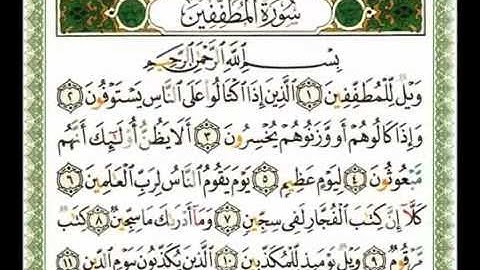 سُورَةُ المُطَفِّفِينَ
بِسْمِ اللَّهِ الرَّحْمَٰنِ الرَّحِيمِ
وَيْلٌ لِّلْمُطَفِّفِينَ ١ الَّذِينَ إِذَا اكْتَالُوا عَلَى النَّاسِ يَسْتَوْفُونَ ٢
وَإِذَا كَالُوهُمْ أَو وَّزَنُوهُمْ يُخْسِرُونَ ٣ أَلَا يَظُنُّ أُولَٰئِكَ أَنَّهُم
مَّبْعُوثُونَ ٤ لِيَوْمٍ عَظِيمٍ ٥ يَوْمَ يَقُومُ النَّاسُ لِرَبِّ الْعَالَمِينَ ٦
كَلَّا إِنَّ كِتَابَ الْفُجَّارِ لَفِي سِجِّينٍ ٧ وَمَا أَدْرَاكَ مَا سِجِّينٌ ٨ كِتَابٌ
مَّرْقُومٌ ٩ وَيْلٌ يَوْمَئِذٍ لِّلْمُكَذِّبِينَ ١٠ الَّذِينَ يُكَذِّبُونَ بِيَوْمِ الدِّينِ ١١